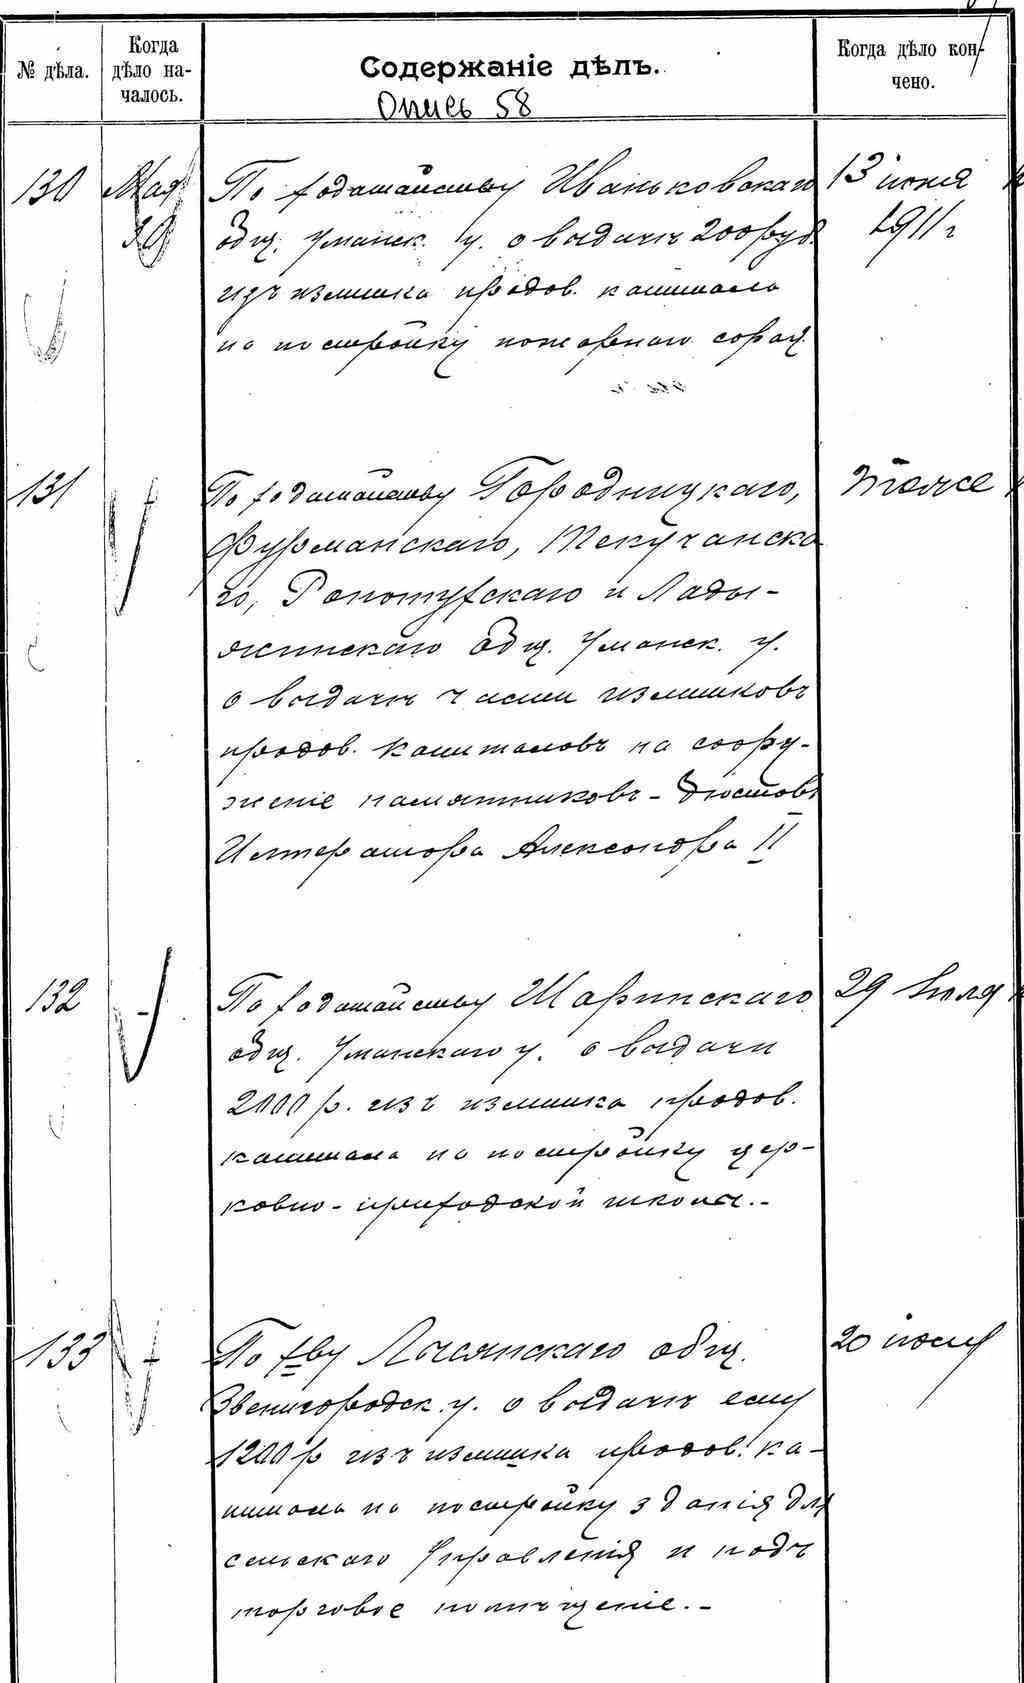 № дѣла.
Когда дѣло на-
чалось.
Содержаніе дѣлъ.
Когда дѣло кон-
чено.
Опись 58
130 Мая 30 По ходатайству Иваньковскаго 13 іюня
общ. Уманск. у. о выдачѣ 200 руб. 1911 г
изъ излишка продов. капитала
на постройку пожарнаго сарая.
131 По ходатайству Городницкаго, тоже
Фурманскаго, Текучанска
го, Ропотухскаго и Лады-
жинскаго общ. Уманск. у.
о выдачѣ части излишковъ
продов. капиталовъ на соору-
женіе памятниковъ-бюстовъ
Императора Александра II
132 По ходатайству Шаринскаго 29 Іюля
общ. Уманскаго у. о выдачи
2000 р. изъ излишка продов.
капитала на постройку цер-
ковно-приходской школы.-
133 По х-ву Лысянскаго общ. 20 іюня
Звенигородск. у. о выдачѣ ему
1200 р изъ излишка продов. ка-
питала на постройку зданія для
сельскаго Управленія и подъ
торговое помѣщеніе.-